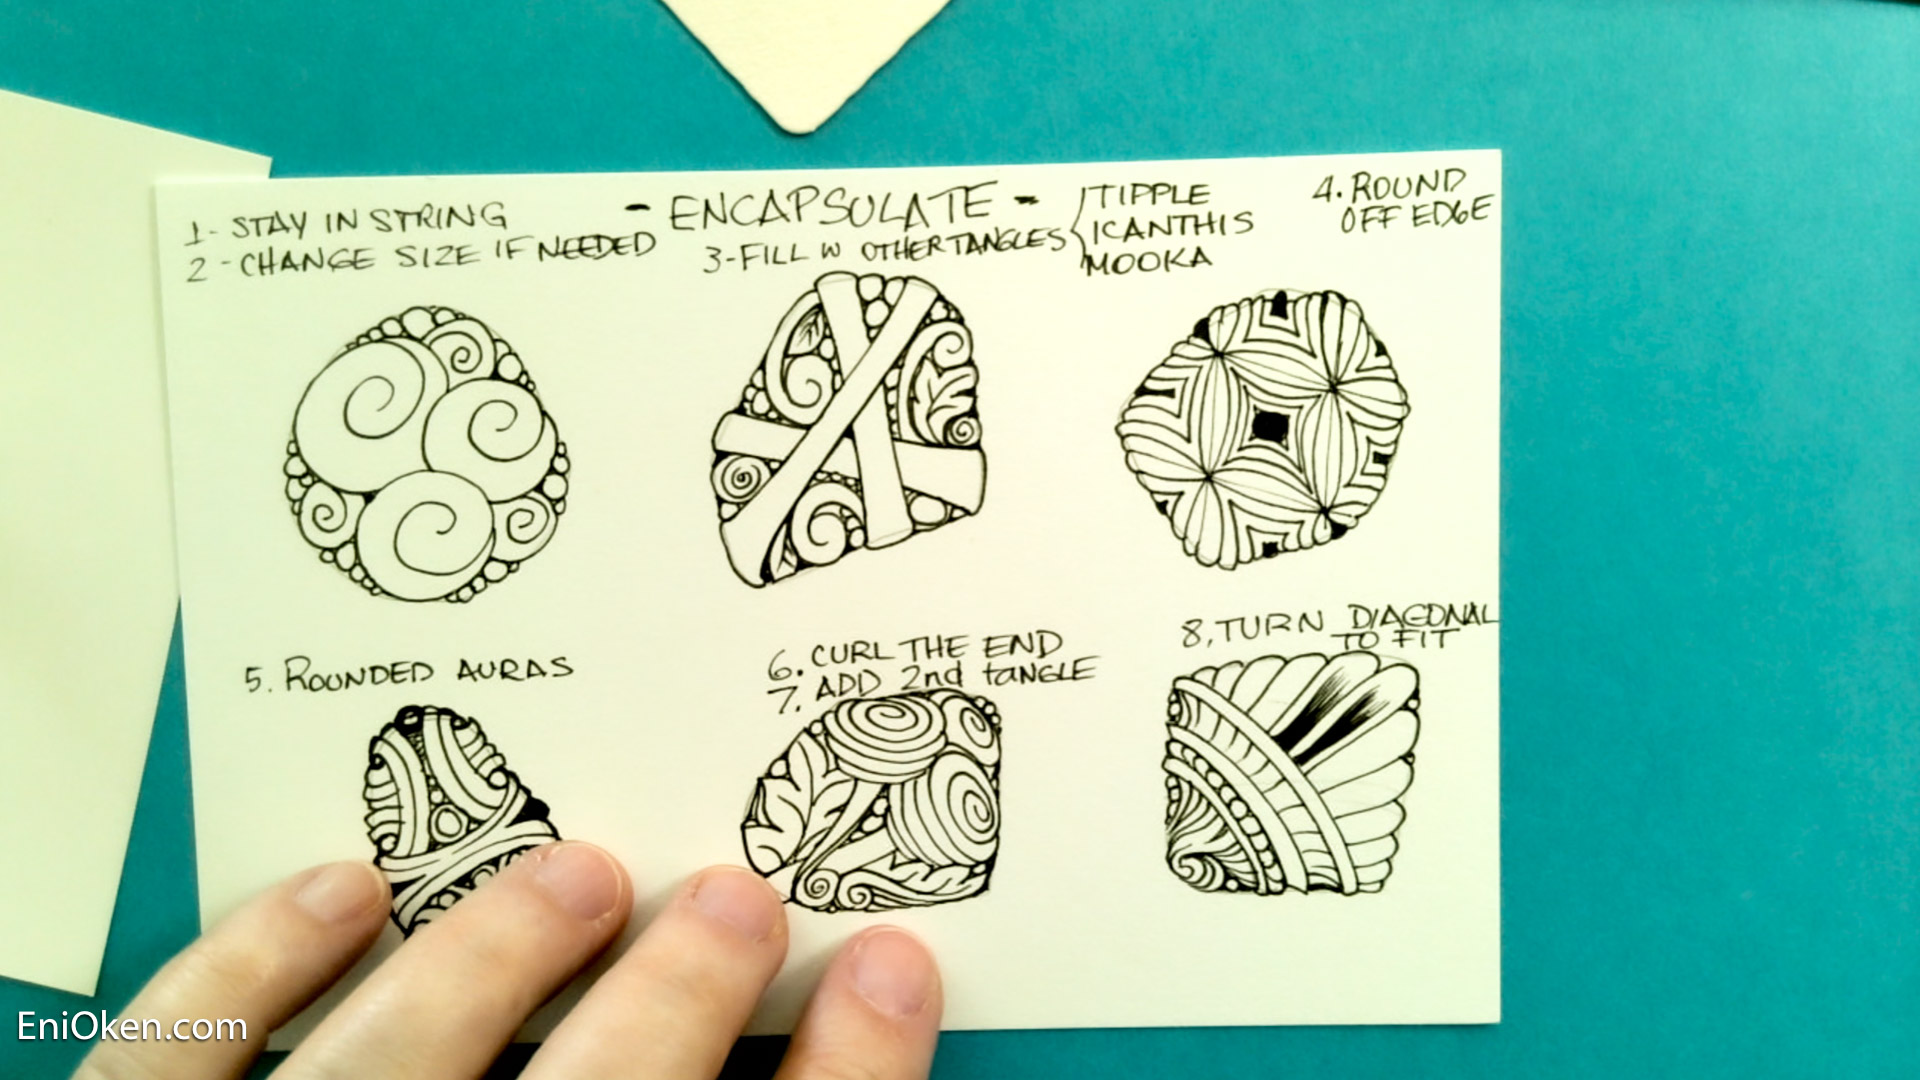 - ENCAPSULATE -
1- STAY IN STRING
2- CHANGE SIZE IF NEEDED
3-FILL W OTHER TANGLES
TIPPLE
ICANTHIS
MOOKA
4. ROUND
OFF EDGE
5. ROUNDED AURAS
6. CURL THE END
7. ADD 2nd tANGLE
8. TURN DIAGONAL
TO FIT
EniOken.com